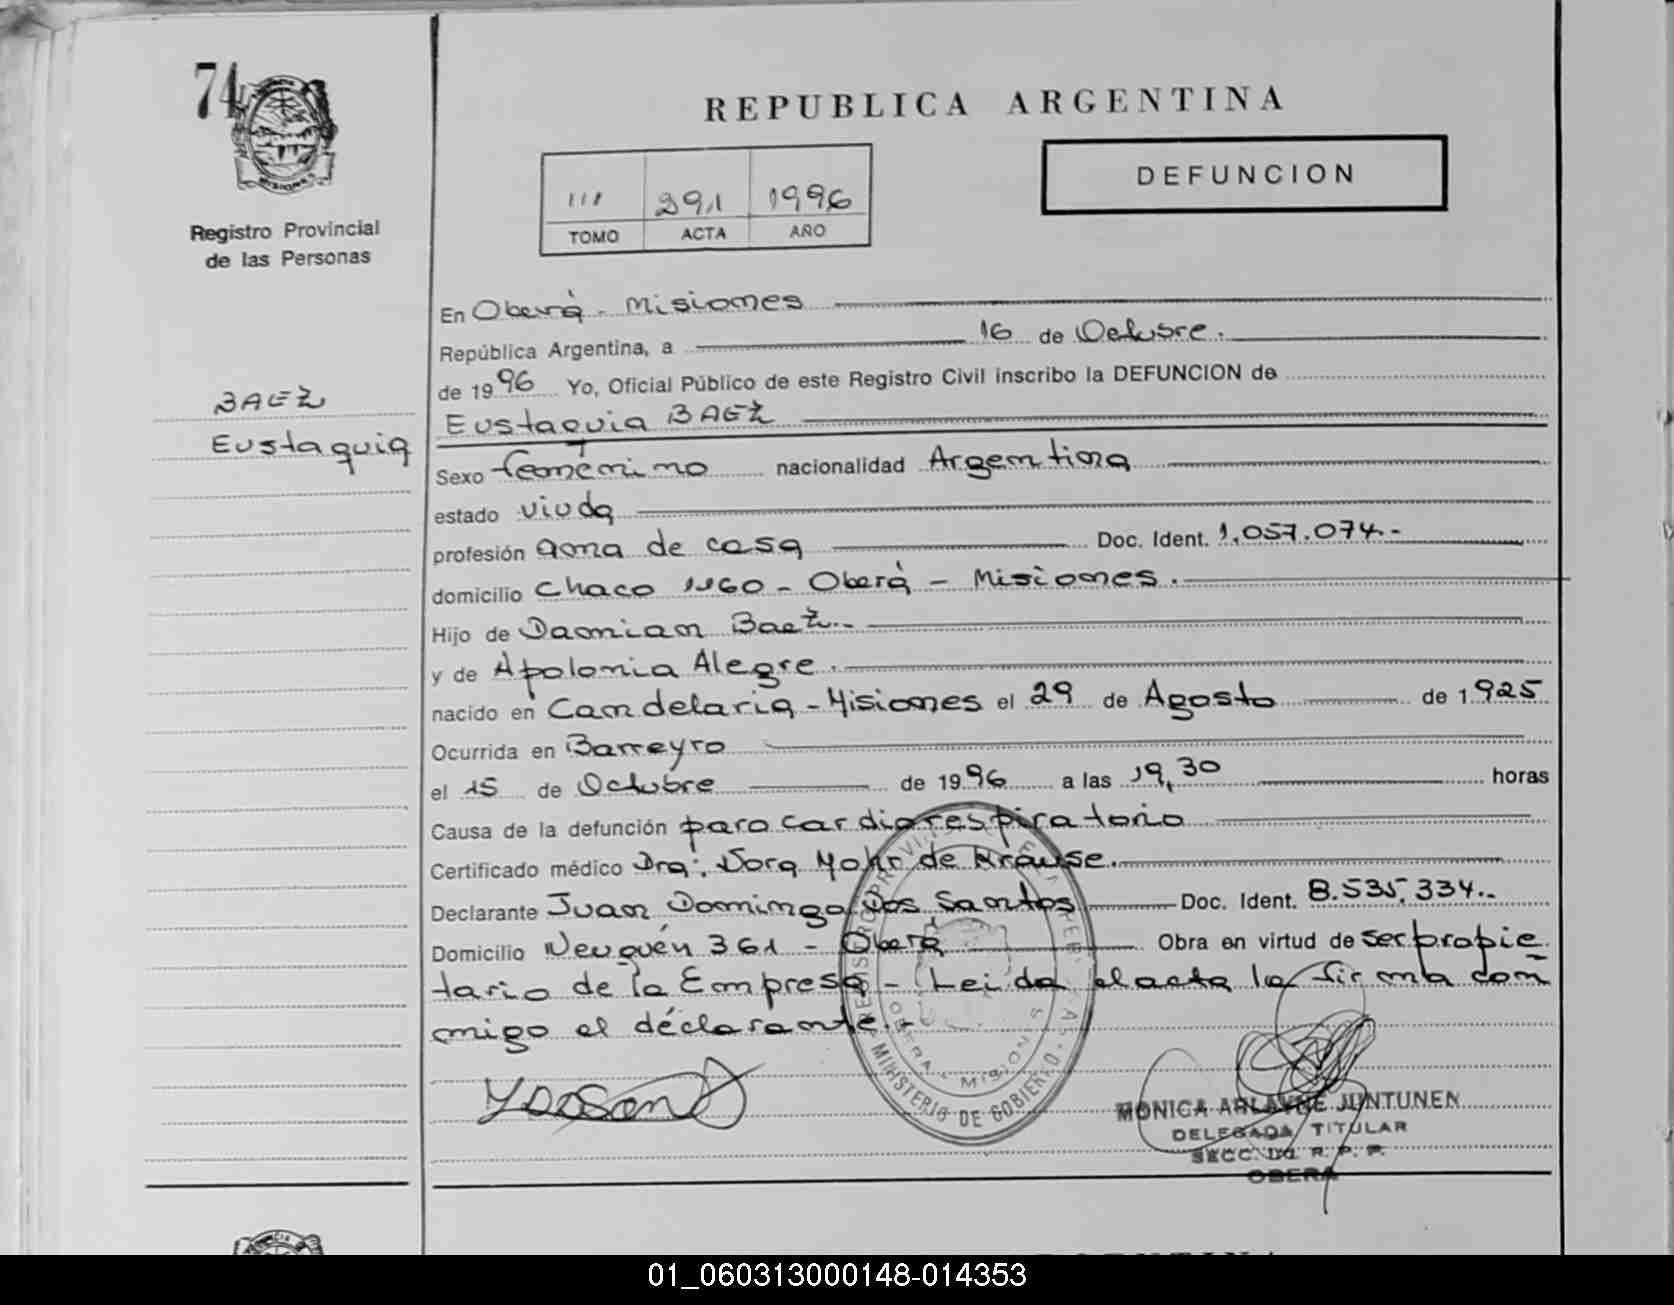 74
Registro Provincial
de las Personas
REPUBLICA ARGENTINA
DEFUNCION
III 291 1996
TOMO ACTA AÑO
BAEZ
Eustaquia
En Oberà - Misiones
República Argentina, a 16 de Octubre.
de 1996 Yo, Oficial Público de este Registro Civil inscribo la DEFUNCION de
Eustaquia BAEZ
Sexo femenino nacionalidad Argentina
estado viuda
profesión ama de casa Doc. Ident. 1.057.074.-
domicilio Chaco 1160 - Oberà - Misiones.
Hijo de Damian Baez.-
y de Apolonia Alegre.
nacido en Candelaria - Misiones el 29 de Agosto de 1925
Ocurrida en Barreyro
el 15 de Octubre de 1996 a las 19,30 horas
Causa de la defunción paro cardiorespiratorio
Certificado médico Dra: Dora Mohr de Krause.
Declarante Juan Domingo Dos Santos Doc. Ident. 8.535.334.-
Domicilio Neuquén 361 - Oberà Obra en virtud de ser propie
tario de la Empresa - Leida el acta la firma con
migo el déclarante.-
MINISTERIO DE GOBIERNO
OBERA - MISIONES
MONICA ARLAYNE JUNTUNEN
DELEGADA TITULAR
SECC. R. P. P.
OBERA
01_060313000148-014353